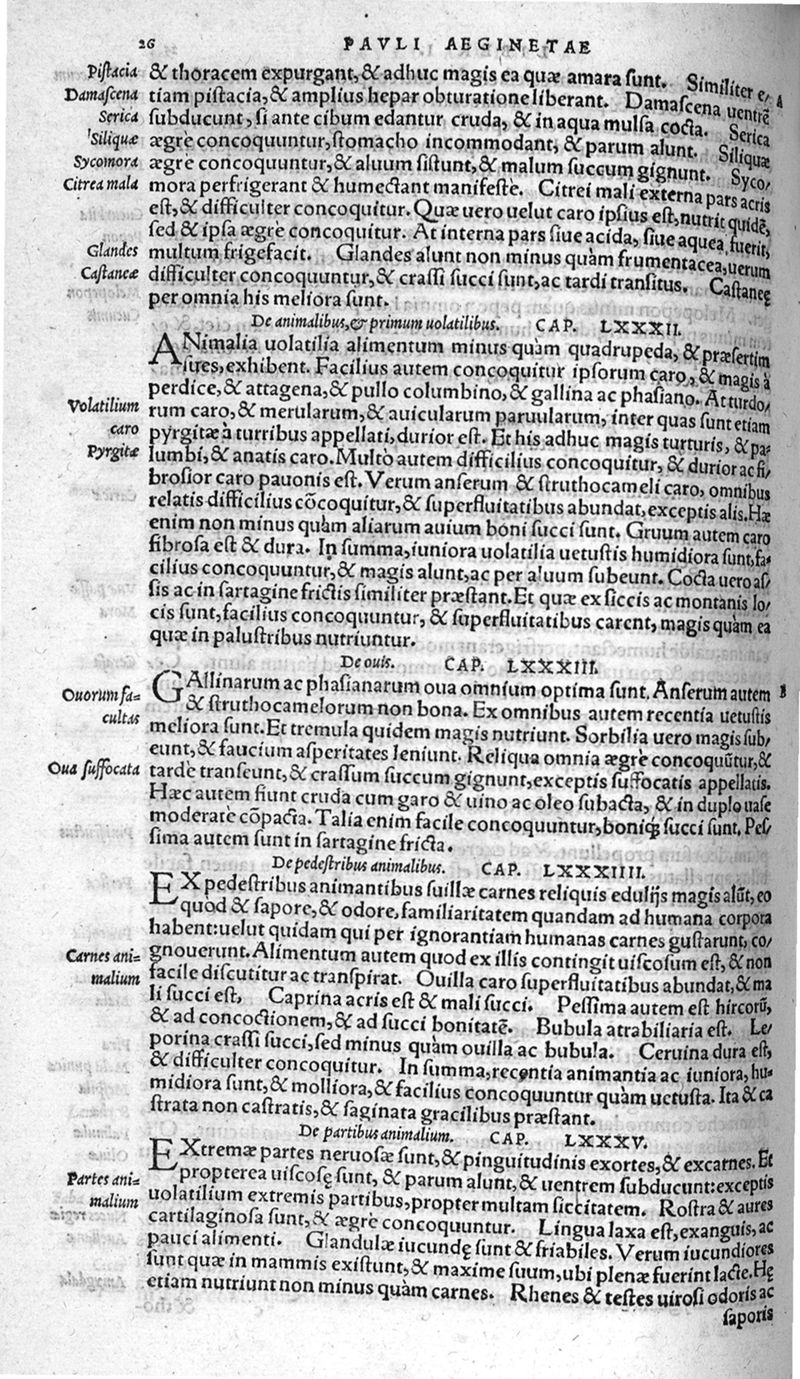 26 PAVLI AEGINETAE
Pistacia & thoracem expurgant, & adhuc magis ea quæ amara sunt. Similiter e/
Damascena tiam pistacia, & amplius hepar obturatione liberant. Damascena uentrē A
Serica subducunt, si ante cibum edantur cruda, & in aqua mulsa cocta. Serica
Siliquæ ægrè concoquuntur, stomacho incommodant, & parum alunt. Siliquæ
Sycomora ægrè concoquuntur, & aluum sistunt, & malum succum gignunt. Syco/
Citrea mala mora perfrigerant & humectant manifeste. Citrei mali externa pars acris
est, & difficulter concoquitur. Quæ uero uelut caro ipsius est, nutrit quidē,
sed & ipsa ægrè concoquitur. At interna pars siue acida, siue aquea fuerit,
Glandes multum frigefacit. Glandes alunt non minus quàm frumentacea, uerum
Castaneæ difficulter concoquuntur, & crassi succi sunt, ac tardi transitus. Castaneę
per omnia his meliora sunt.
De animalibus, & primum uolatilibus. CAP. LXXXII.
ANimalia uolatilia alimentum minus quàm quadrupeda, & præsertim
sues, exhibent. Facilius autem concoquitur ipsorum caro, & magis à
perdice, & attagena, & pullo columbino, & gallina ac phasiano. At turdo/
Volatilium caro rum caro, & merularum, & auicularum paruularum, inter quas sunt etiam
pyrgitæ à turribus appellati, durior est. Et his adhuc magis turturis, & pa/
Pyrgitæ lumbi, & anatis caro. Multò autem difficilius concoquitur, & durior ac fi/
brosior caro pauonis est. Verum anserum & struthocameli caro, omnibus
relatis difficilius cōcoquitur, & superfluitatibus abundat, exceptis alis. Hæ
enim non minus quàm aliarum auium boni succi sunt. Gruum autem caro
fibrosa est & dura. In summa, iuniora uolatilia uetustis humidiora sunt, fa-
cilius concoquuntur, & magis alunt, ac per aluum subeunt. Cocta uero as/
sis ac in sartagine frictis similiter præstant. Et quæ ex siccis ac montanis lo/
cis sunt, facilius concoquuntur, & superfluitatibus carent, magis quàm ea
quæ in palustribus nutriuntur.
De ouis. CAP. LXXXIII.
Ouorum fa= cultas GAllinarum ac phasianarum oua omnium optima sunt. Anserum autem B
& struthocamelorum non bona. Ex omnibus autem recentia uetustis
meliora sunt. Et tremula quidem magis nutriunt. Sorbilia uero magis sub/
eunt, & faucium asperitates leniunt. Reliqua omnia ægrè concoquūtur, &
Oua suffocata tardè transeunt, & crassum succum gignunt, exceptis suffocatis appellatis.
Hæc autem fiunt cruda cum garo & uino ac oleo subacta, & in duplo uase
moderatè cōpacta. Talia enim facile concoquuntur, boniq́; succi sunt. Pes/
sima autem sunt in sartagine fricta.
De pedestribus animalibus. CAP. LXXXIIII.
EX pedestribus animantibus suillæ carnes reliquis edulijs magis alūt, eo
quod & sapore, & odore, familiaritatem quandam ad humana corpora
habent: uelut quidam qui per ignorantiam humanas carnes gustarunt, co/
Carnes ani= malium gnouerunt. Alimentum autem quod ex illis contingit uiscosum est, & non
facile discutitur ac transpirat. Ouilla caro superfluitatibus abundat, & ma
li succi est, Caprina acris est & mali succi. Pessima autem est hircorū,
& ad concoctionem, & ad succi bonitatē. Bubula atrabiliaria est. Le/
porina crassi succi, sed minus quàm ouilla ac bubula. Ceruina dura est,
& difficulter concoquitur. In summa, recentia animantia ac iuniora, hu-
midiora sunt, & molliora, & facilius concoquuntur quàm uetusta. Ita & ca
strata non castratis, & saginata gracilibus præstant.
De partibus animalium. CAP. LXXXV.
EXtremæ partes neruosæ sunt, & pinguitudinis exortes, & excarnes. Et
Partes ani= malium propterea uiscosę sunt, & parum alunt, & uentrem subducunt: exceptis
uolatilium extremis partibus, propter multam siccitatem. Rostra & aures
cartilaginosa sunt, & ægrè concoquuntur. Lingua laxa est, exanguis, ac
pauci alimenti. Glandulæ iucundę sunt & friabiles. Verum iucundiores
sunt quæ in mammis existunt, & maxime suum, ubi plenæ fuerint lacte. Hę
etiam nutriunt non minus quàm carnes. Rhenes & testes uirosi odoris ac
saporis